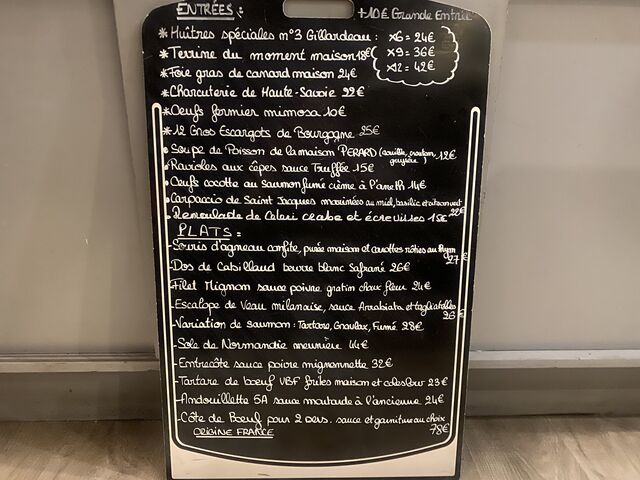 ENTRÉES : +10€ Grande Entrée
* Huîtres spéciales n°3 Gillardeau : x6 = 24€
x9 = 36€
x12 = 42€
* Terrine du moment maison 18€
* Foie gras de canard maison 24€
* Charcuterie de Haute-Savoie 22€
* Oeufs fermier mimosa 10€
* 12 Gros Escargots de Bourgogne 25€
• Soupe de Poisson de la maison PERARD (rouille, croutons, gruyère) 12€
• Ravioles aux cêpes sauce Truffée 15€
• Oeufs cocotte au saumon fumé crème à l'aneth 14€
• Carpaccio de Saint Jacques marinées au miel, basilic et citron vert 22€
• Remoulade de Celeri crabe et écrevisses 15€
PLATS :
- Souris d'agneau confite, purée maison et carottes rôties au thym 27€
- Dos de Cabillaud beurre blanc Safrané 26€
- Filet Mignon sauce poivre gratin choux fleur 24€
- Escalope de Veau milanaise, sauce Arrabiata et tagliatelles 26€
- Variation de saumon : Tartare, Gravlax, Fumé 28€
- Sole de Normandie meunière 44€
- Entrecôte sauce poivre mignonnette 32€
- Tartare de boeuf VBF frites maison et coleslow 23€
- Andouillette 5A sauce moutarde à l'ancienne 24€
- Côte de Boeuf pour 2 pers. sauce et garniture au choix 78€
ORIGINE FRANCE